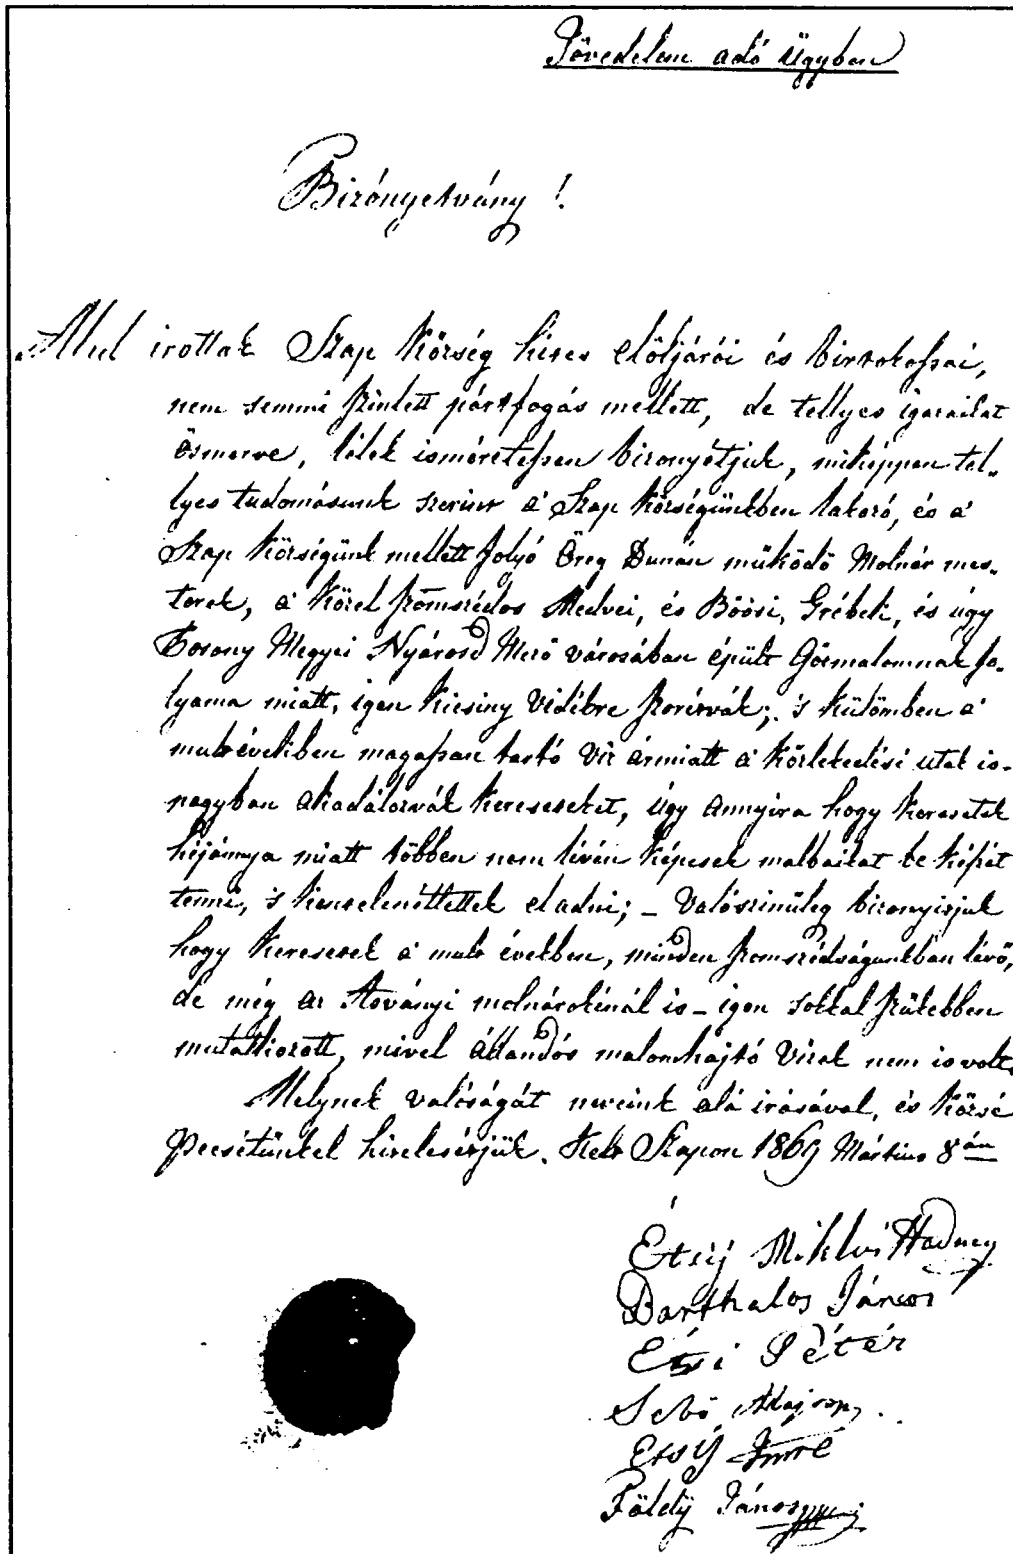 Jövedelem adó Ügyben
Bizonyetvány !
Alul irottak Szap Község hites elöljárói és birtokossai,
nem semmi szinlett pártfogás mellett, de tellyes igazailat
ösmerve, lélek isméretessen bizonyétjuk, miképpen tel-
lyes tudomásunk szerint a' Szap községünkben lakozó, és a'
Szap Községünk mellett folyó Öreg Dunán müködö Molnár mes-
terek, a' közel szomszédos Medvei, és Böösi, Grébeli, és úgy
Posony Megyei Nyárosd Mezö városában épült Gözmalomnak fo-
lyama miatt, igen kicsiny vidékre szorítvák; 's külömben a'
mult években magassan tartó víz ármiatt a' közlekedési utak is-
nagyban akadálozvák kereseteket, úgy annyira hogy keresetek
héjánnya miatt többen nem lévén képesek malbaikat be
tenni, 's kentelenéttettek eladni; – Valószinüleg bizonyitjuk
hogy keresetek a' mult években, minden szomszédságunkban lévö,
de még az Ásványi molnárokénál is – igen sokkal szükebben
mutatkozott, mivel állandós malomhajtó vizek nem is volt.
Melynek valóságát neveink alá irásával, és közsé
Pecsétünkel hitelesétjük. Kelt Szapon 1869 Mártius 8án
Étsÿ Miklós Hadnagy
Barthalos János
Étsi Péter
Sebö
Etsÿ Imré
Földÿ János